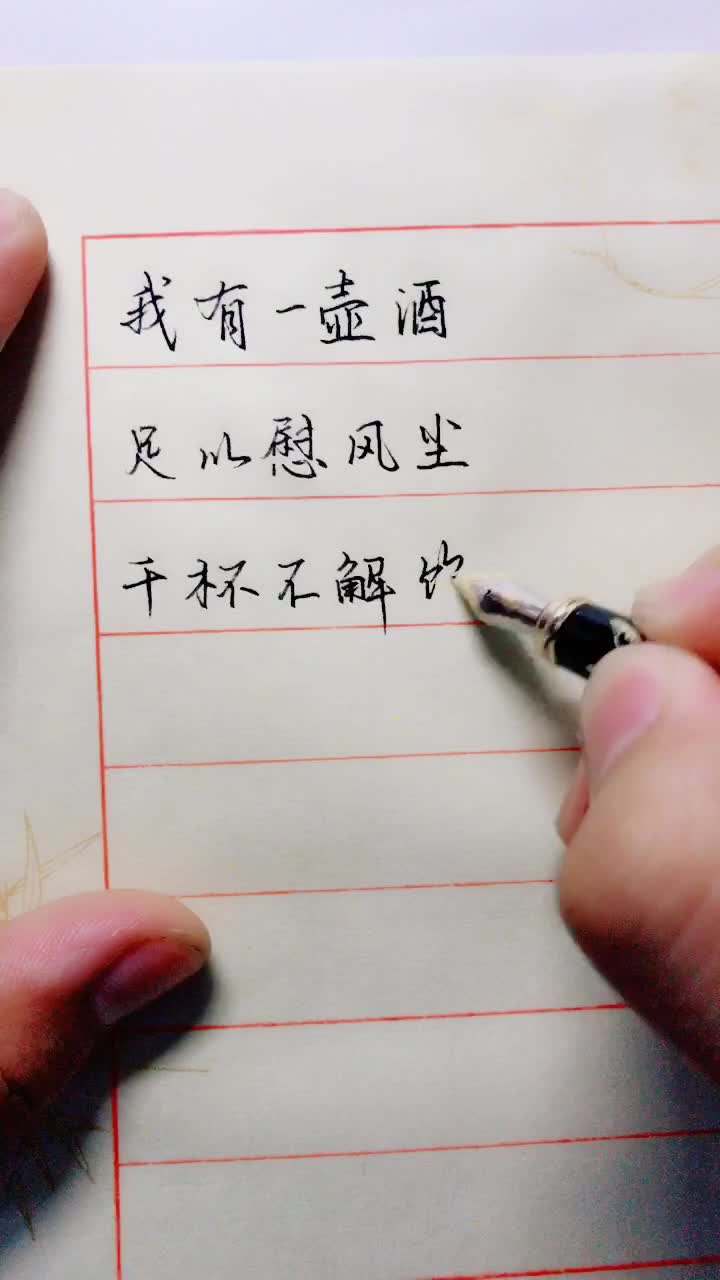 我有一壶酒
足以慰风尘
千杯不解